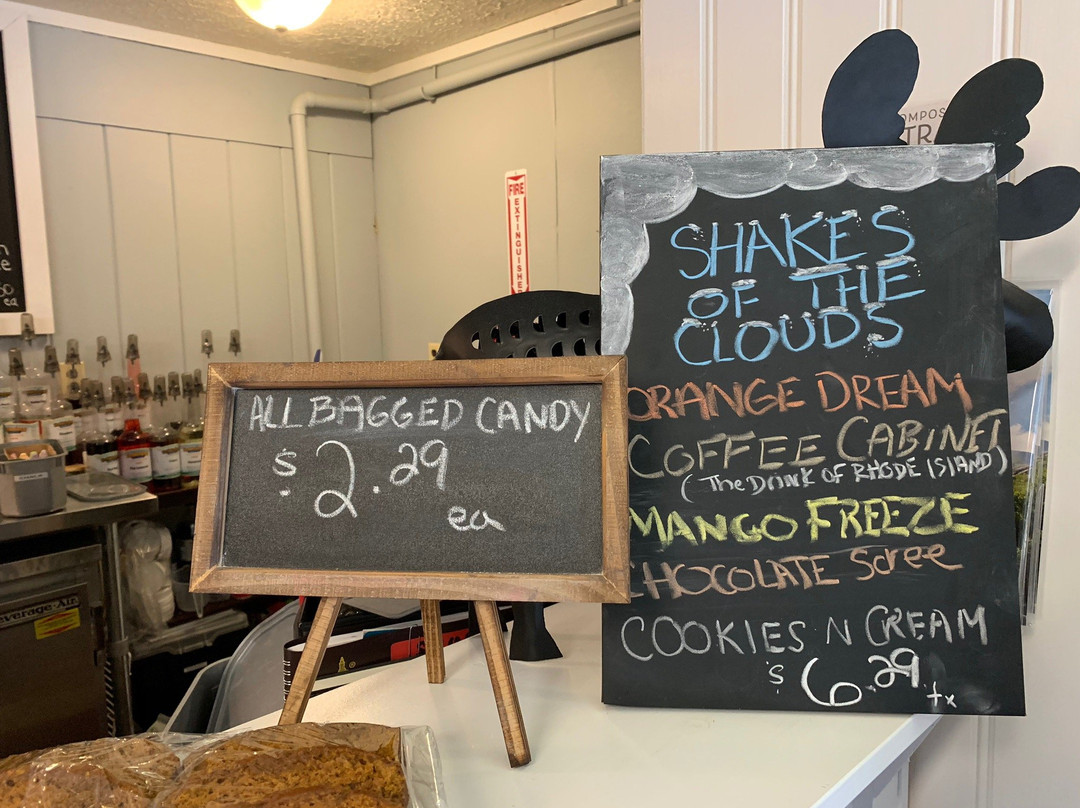 ALL BAGGED CANDY
$2.29
ea
SHAKES
OF THE
CLOUDS
ORANGE DREAM
COFFEE CABINET
(The Drink OF RHODE ISLAND)
MANGO FREEZE
CHOCOLATE Scree
COOKIES N CREAM
$6.29 tx
FIRE
EXTINGUISHE
OMPOS
TR
everage-Air
ea